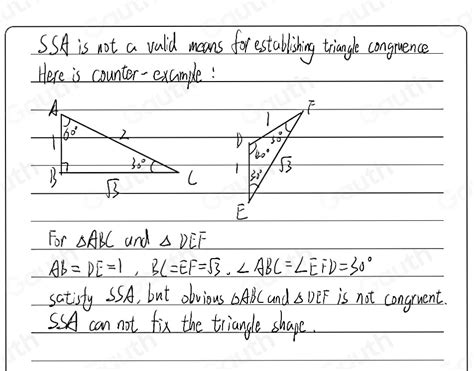 SSA is not a valid means for establishing triangle congruence
Here is counter-example:
A
60°
1
2
B
30°
C
√3
F
1
30°
D
1
√3
30°
E
For △ABC and △DEF
AB=DE=1, BC=EF=√3. ∠ABC=∠EFD=30°
satisfy SSA, but obvious △ABC and △DEF is not congruent.
SSA can not fix the triangle shape.